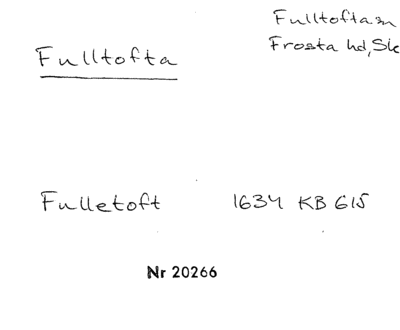 Fulltofta sn
Frosta hd, Sk
Fulltofta
Fulletoft 1634 KB 615
Nr 20266